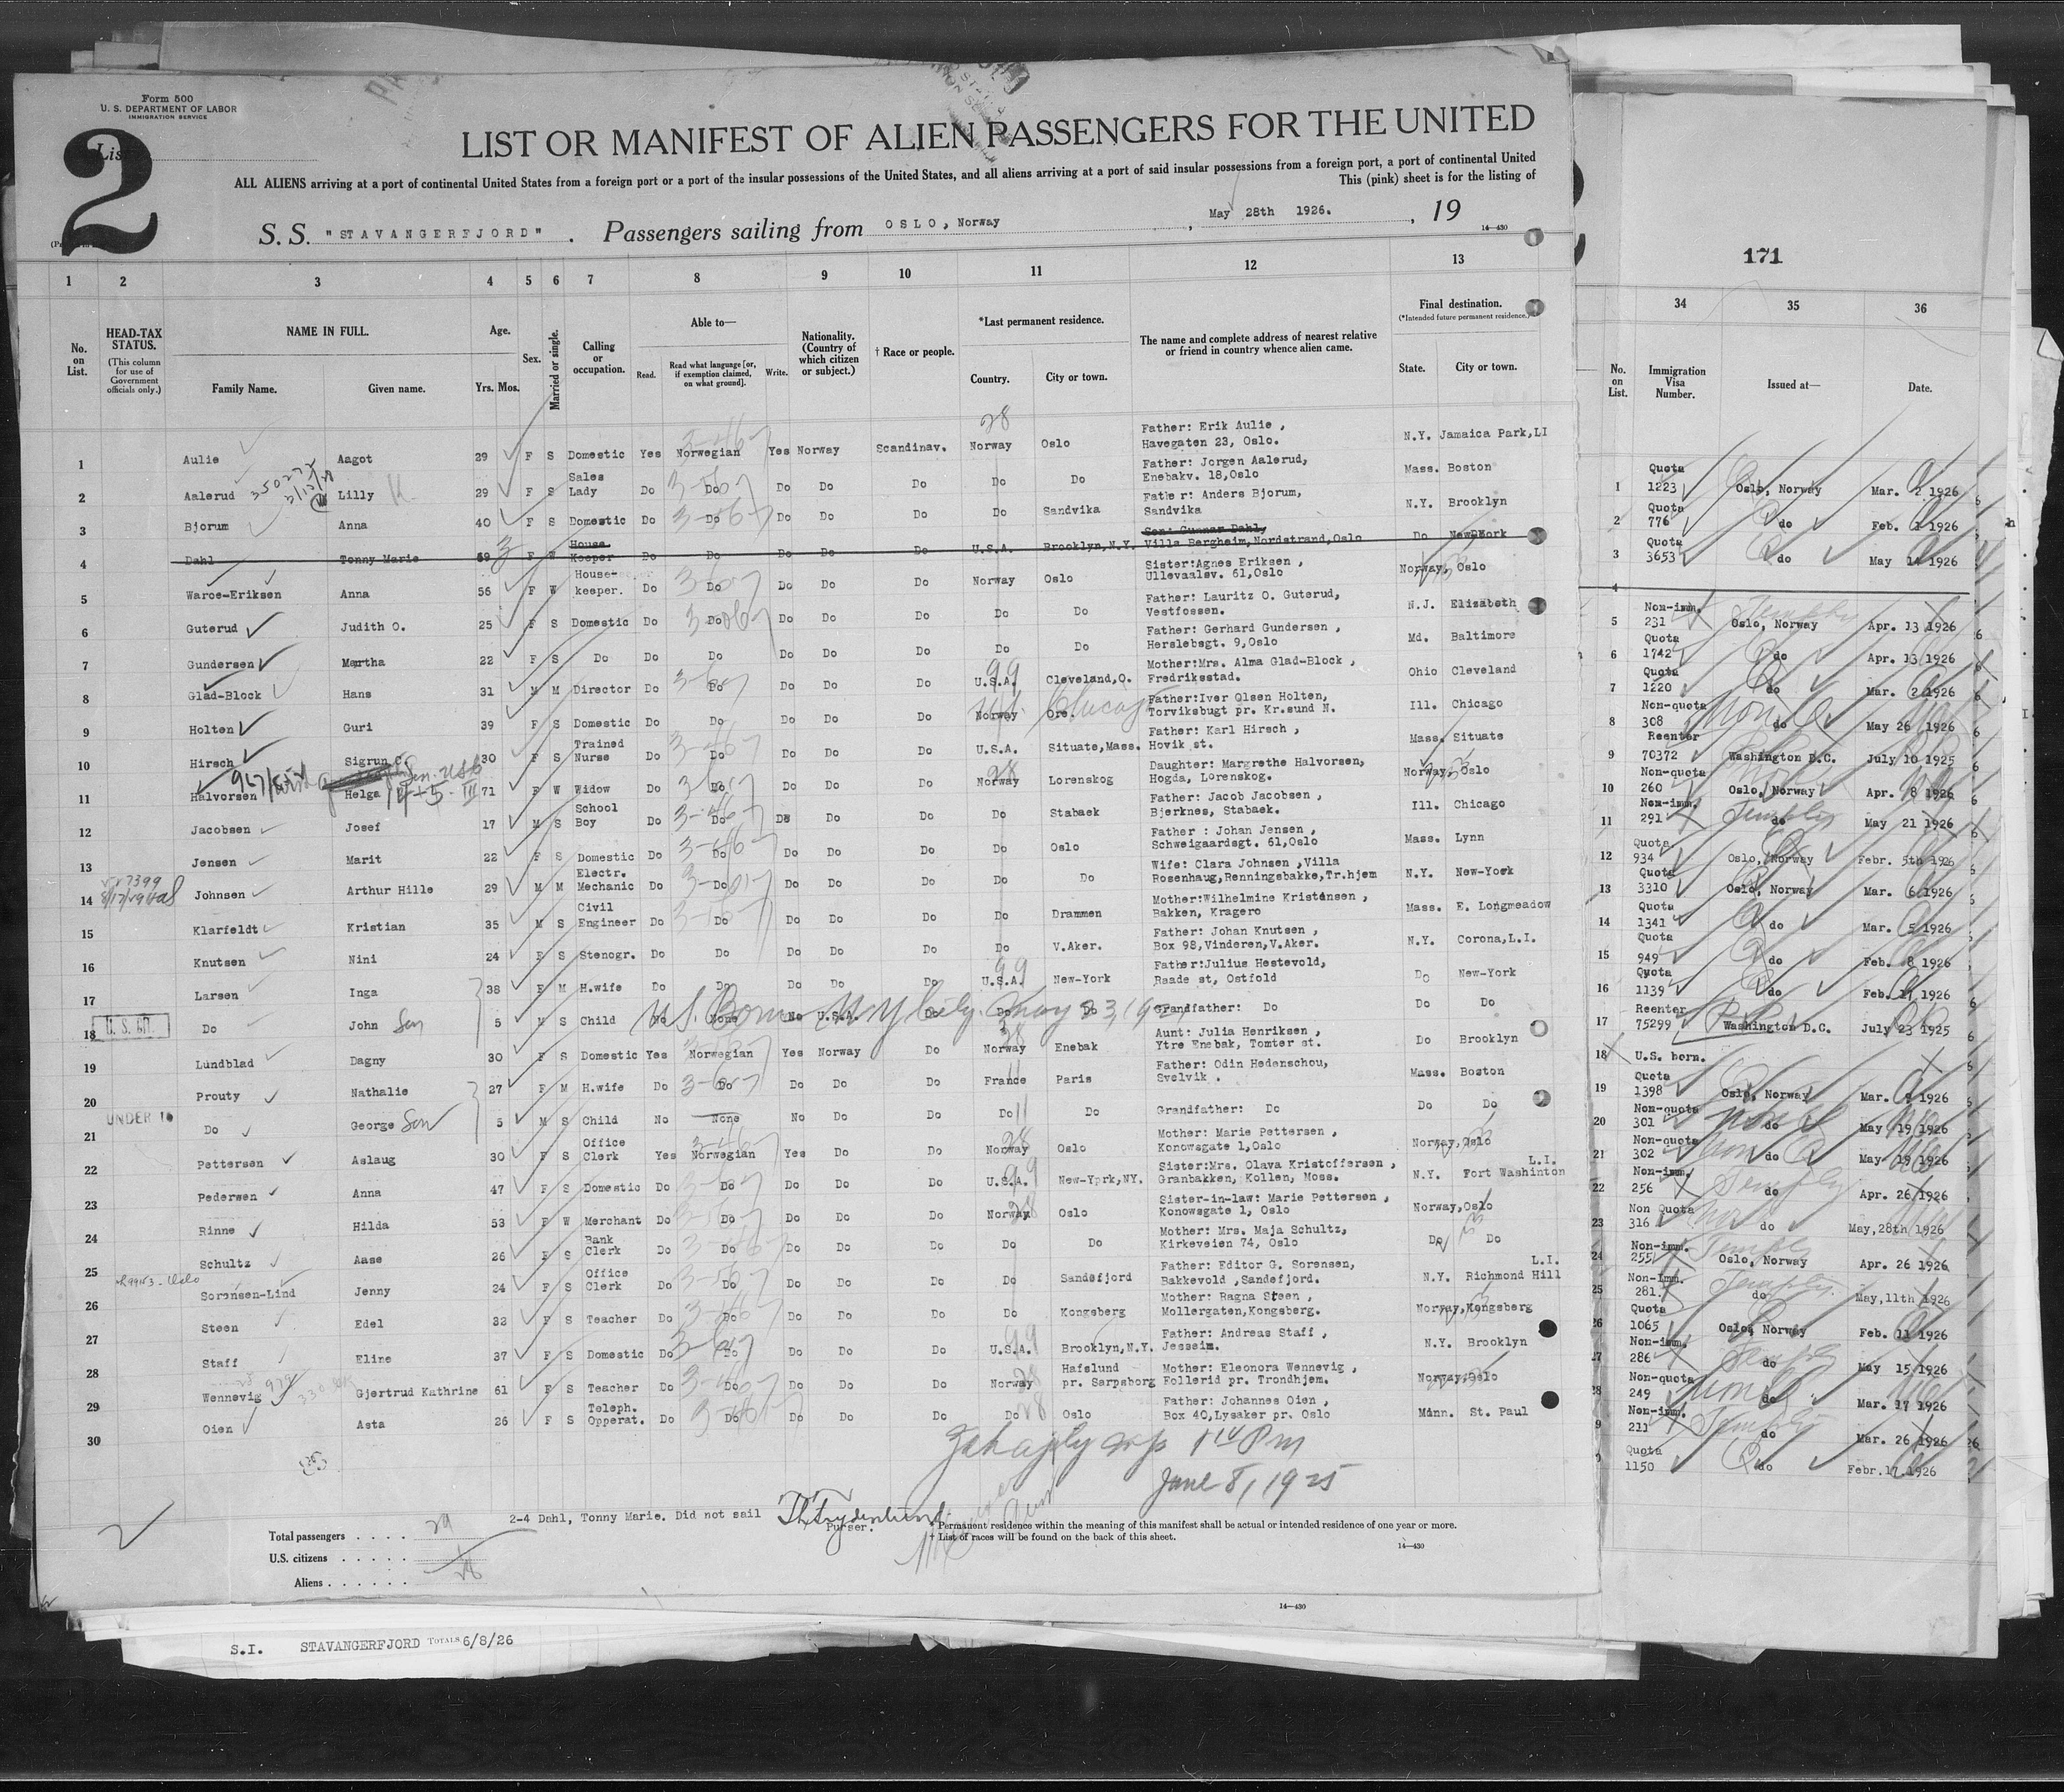 Form 500
U. S. DEPARTMENT OF LABOR
IMMIGRATION SERVICE
List
2
LIST OR MANIFEST OF ALIEN PASSENGERS FOR THE UNITED
ALL ALIENS arriving at a port of continental United States from a foreign port or a port of the insular possessions of the United States, and all aliens arriving at a port of said insular possessions from a foreign port, a port of continental United
This (pink) sheet is for the listing of
S. S. "STAVANGERFJORD" . Passengers sailing from OSLO, Norway , May 28th 1926. , 19
14—430
171
1 2 3 4 5 6 7 8 9 10 11 12 13
No. on List.
HEAD-TAX STATUS.
(This column for use of Government officials only.)
NAME IN FULL.
Family Name. Given name.
Age.
Yrs. Mos.
Sex.
Married or single.
Calling or occupation.
Able to—
Read. Read what language [or, if exemption claimed, on what ground]. Write.
Nationality. (Country of which citizen or subject.)
† Race or people.
*Last permanent residence.
Country. City or town.
The name and complete address of nearest relative or friend in country whence alien came.
Final destination.
(*Intended future permanent residence.)
State. City or town.
1 Aulie Aagot 29 F S Domestic Yes Norwegian Yes Norway Scandinav. Norway Oslo Father: Erik Aulie, Havegaten 23, Oslo. N.Y. Jamaica Park,LI
2 Aalerud Lilly 29 F S Sales Lady Do Do Do Do Do Do Do Father: Jorgen Aalerud, Enebakv. 18,Oslo Mass. Boston
3 Bjorum Anna 40 F S Domestic Do Do Do Do Do Do Sandvika Father: Anders Bjorum, Sandvika N.Y. Brooklyn
4 Dahl Tonny Marie 69 F W House Keeper Do Do Do Do Do U.S.A. Brooklyn,N.Y. Son: Gunnar Dahl, Villa Bergheim,Nordstrand,Oslo Do New York
5 Waroe-Eriksen Anna 56 F W House-keeper. Do Do Do Do Do Norway Oslo Sister:Agnes Eriksen, Ullevaalsv. 61,Oslo Norway, Oslo
6 Guterud Judith O. 25 F S Domestic Do Do Do Do Do Do Do Father: Lauritz O. Guterud, Vestfossen. N.J. Elizabeth
7 Gundersen Martha 22 F S Do Do Do Do Do Do Do Do Father: Gerhard Gundersen, Herslebsgt. 9,Oslo Md. Baltimore
8 Glad-Block Hans 31 M M Director Do Do Do Do Do U.S.A. Cleveland,O. Mother:Mrs. Alma Glad-Block, Fredriksstad. Ohio Cleveland
9 Holten Guri 39 F S Domestic Do Do Do Do Do Norway Ore. Chicago Father:Iver Olsen Holten, Torviksbugt pr. Kr.sund N. Ill. Chicago
10 Hirsch Sigrun C. 30 F S Trained Nurse Do Do Do Do Do U.S.A. Situate,Mass. Father: Karl Hirsch, Hovik st. Mass. Situate
11 Halvorsen Helga 71 F W Widow Do Do Do Do Do Norway Lorenskog Daughter: Margrethe Halvorsen, Hogda, Lorenskog. Norway, Oslo
12 Jacobsen Josef 17 M S School Boy Do Do Do Do Do Do Stabaek Father: Jacob Jacobsen, Bjerknes, Stabaek. Ill. Chicago
13 Jensen Marit 22 F S Domestic Do Do Do Do Do Do Oslo Father : Johan Jensen, Schweigaardsgt. 61,Oslo Mass. Lynn
14 Johnsen Arthur Hille 29 M M Electr. Mechanic Do Do Do Do Do Do Do Wife: Clara Johnsen ,Villa Rosenhaug,Renningsbakke,Tr.hjem N.Y. New-York
15 Klarfeldt Kristian 35 M S Civil Engineer Do Do Do Do Do Do Drammen Mother:Wilhelmine Kristensen, Bakken, Kragero Mass. E. Longmeadow
16 Knutsen Nini 24 F S Stenogr. Do Do Do Do Do Do V.Aker. Father: Johan Knutsen, Box 98,Vinderen,V.Aker. N.Y. Corona,L.I.
17 Larsen Inga 38 F M H.wife Do Do Do Do Do U.S.A. New-York Father:Julius Hestevold, Raade st, Ostfold Do New-York
18 U.S. BN. Do John Son 5 M S Child No None No U.S.A. Do Do Do Grandfather: Do Do Do
U.S. Born N Y City May 23, 19
19 Lundblad Dagny 30 F S Domestic Yes Norwegian Yes Norway Do Norway Enebak Aunt: Julia Henriksen, Ytre Enebak, Tomter st. Do Brooklyn
20 Prouty Nathalie 27 F M H.wife Do Do Do Do Do France Paris Father: Odin Hedenschou, Svelvik . Mass. Boston
21 UNDER 16 Do George Son 5 M S Child No None No Do Do Do Do Grandfather: Do Do Do
22 Pettersen Aslaug 30 F S Office Clerk Yes Norwegian Yes Do Do Norway Oslo Mother: Marie Pettersen, Konowsgate 1,Oslo Norway,Oslo
23 Pedersen Anna 47 F S Domestic Do Do Do Do Do U.S.A. New-Yprk,NY. Sister:Mrs. Olava Kristoffersen, Granbakken, Kollen, Moss. N.Y. Fort Washinton L.I.
24 Rinne Hilda 53 F W Merchant Do Do Do Do Do Norway Oslo Sister-in-law: Marie Pettersen, Konowsgate 1, Oslo Norway,Oslo
25 Schultz Aase 26 F S Bank Clerk Do Do Do Do Do Do Do Mother: Mrs. Maja Schultz, Kirkeveien 74, Oslo Do Do
26 Sorensen-Lind Jenny 24 F S Office Clerk Do Do Do Do Do Do Sandefjord Father: Editor G. Sorensen, Bakkevold ,Sandefjord. N.Y. Richmond Hill L.I.
27 Steen Edel 33 F S Teacher Do Do Do Do Do Do Kongsberg Mother: Ragna Steen, Mollergaten,Kongsberg. Norway,Kongsberg
28 Staff Eline 37 F S Domestic Do Do Do Do Do U.S.A. Brooklyn,N.Y. Father: Andreas Staff, Jesseim. N.Y. Brooklyn
29 Wennevig Gjertrud Kathrine 61 F S Teacher Do Do Do Do Do Norway Hafslund pr. Sarpsborg Mother: Eleonora Wennevig, Follerid pr. Trondhjem. Norway,Oslo
30 Oien Asta 26 F S Teleph. Opperat. Do Do Do Do Do Do Oslo Father: Johannes Oien, Box 40,Lysaker pr. Oslo Minn. St. Paul
June 8, 1925
2-4 Dahl, Tonny Marie. Did not sail
Purser.
Total passengers . . . . 29
U.S. citizens . . . . . 1
Aliens . . . . . . 28
* Permanent residence within the meaning of this manifest shall be actual or intended residence of one year or more.
† List of races will be found on the back of this sheet.
14—430
14—430
S.I. STAVANGERFJORD TOTALS 6/8/26
34 35 36
No. on List. Immigration Visa Number. Issued at— Date.
1 Quota 1223 Oslo, Norway Mar. 2 1926
2 Quota 776 do Feb. 1 1926
3 Quota 3653 do May 14 1926
4
5 Non-imm. 231 Oslo, Norway Apr. 13 1926
6 Quota 1742 do Apr. 13 1926
7 Quota 1220 do Mar. 2 1926
8 Non-quota 308 do May 26 1926
9 Reenter 70372 Washington D.C. July 10 1925
10 Non-quota 260 Oslo, Norway Apr. 8 1926
11 Non-imm. 291 do May 21 1926
12 Quota 934 Oslo, Norway Febr. 5th 1926
13 Quota 3310 Oslo, Norway Mar. 6 1926
14 Quota 1341 do Mar. 5 1926
15 Quota 949 do Feb. 8 1926
16 Quota 1139 do Feb. 17 1926
17 Reenter 75299 Washington D.C. July 23 1925
18 U.S. born.
19 Quota 1398 Oslo, Norway Mar. 9 1926
20 Non-quota 301 do May 19 1926
21 Non-quota 302 do May 19 1926
22 Non-imm. 256 do Apr. 26 1926
23 Non Quota 316 do May,28th 1926
24 Non-imm. 255 Oslo, Norway Apr. 26 1926
25 Non-Imm. 281 do May,11th 1926
26 Quota 1065 Oslo, Norway Feb. 11 1926
27 Non-imm. 286 do May 15 1926
28 Non-quota 249 do Mar. 17 1926
9 Non-imm. 211 do Mar. 26 1926
Quota 1150 do Febr.17.1926